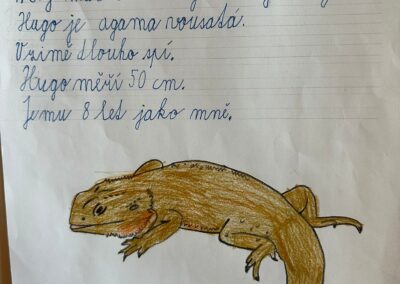 Hugo je agama vousatá.
V zimě dlouho spí.
Hugo měří 50 cm.
Je mu 8 let jako mně.